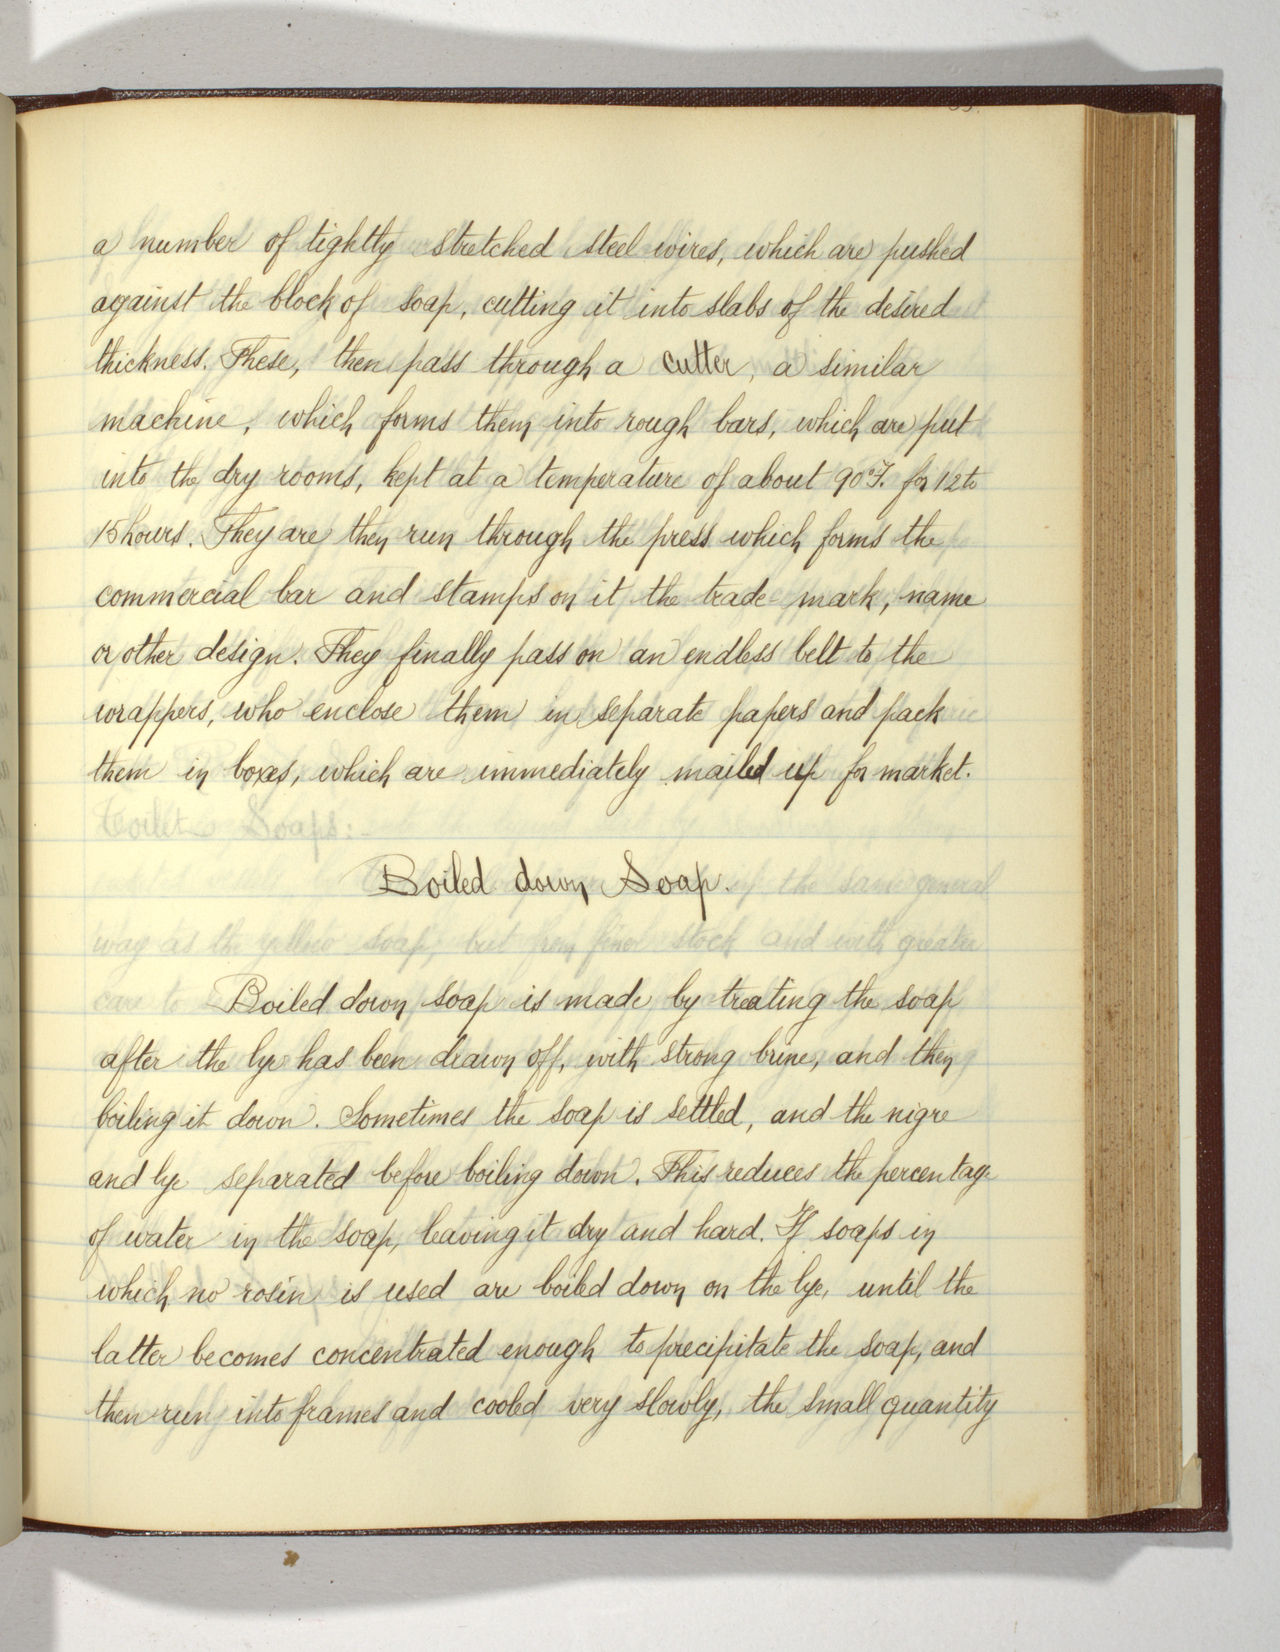 a number of tightly stretched steel wires, which are pushed
against the block of soap, cutting it into slabs of the desired
thickness. These, then pass through a cutter, a similar
machine, which forms them into rough bars, which are put
into the dry rooms, kept at a temperature of about 90°F. for 12 to
15 hours. They are then run through the press which forms the
commercial bar and stamps on it the trade mark, name
or other design. They finally pass on an endless belt to the
wrappers, who enclose them in separate papers and pack
them in boxes, which are immediately mailed up for market.
Toilet Soaps:
Boiled down Soap.
the same general
way as the yellow soap, but from finer stock and with greater
care to
Boiled down soap is made by treating the soap
after the lye has been drawn off, with strong brine, and then
boiling it down. Sometimes the soap is settled, and the nigre
and lye separated before boiling down. This reduces the percentage
of water in the soap, leaving it dry and hard. If soaps in
which no rosin is used are boiled down on the lye, until the
latter becomes concentrated enough to precipitate the soap, and
then run into frames and cooled very slowly, the small quantity